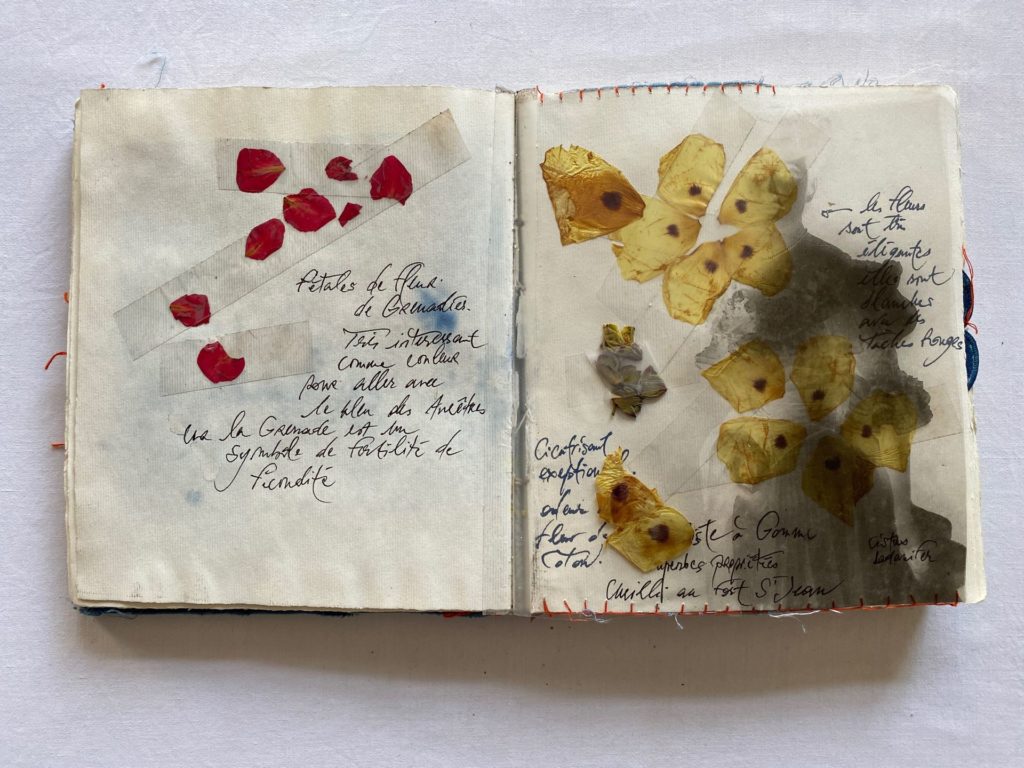 Pétales de fleur
de Grenadier.
Très intéressant
comme couleur
pour aller avec
le bleu des Ancêtres
la Grenade est un
symbole de fertilité de
fécondité
les fleurs
sont très
élégantes
elles sont
blanches
avec des
taches Rouges
Cicatrisant
exception
odeur
fleur de
Coton.
iste à Gomme
uperbes propriétés
Cueilli au fort St Jean
Cistus
Ladanifer